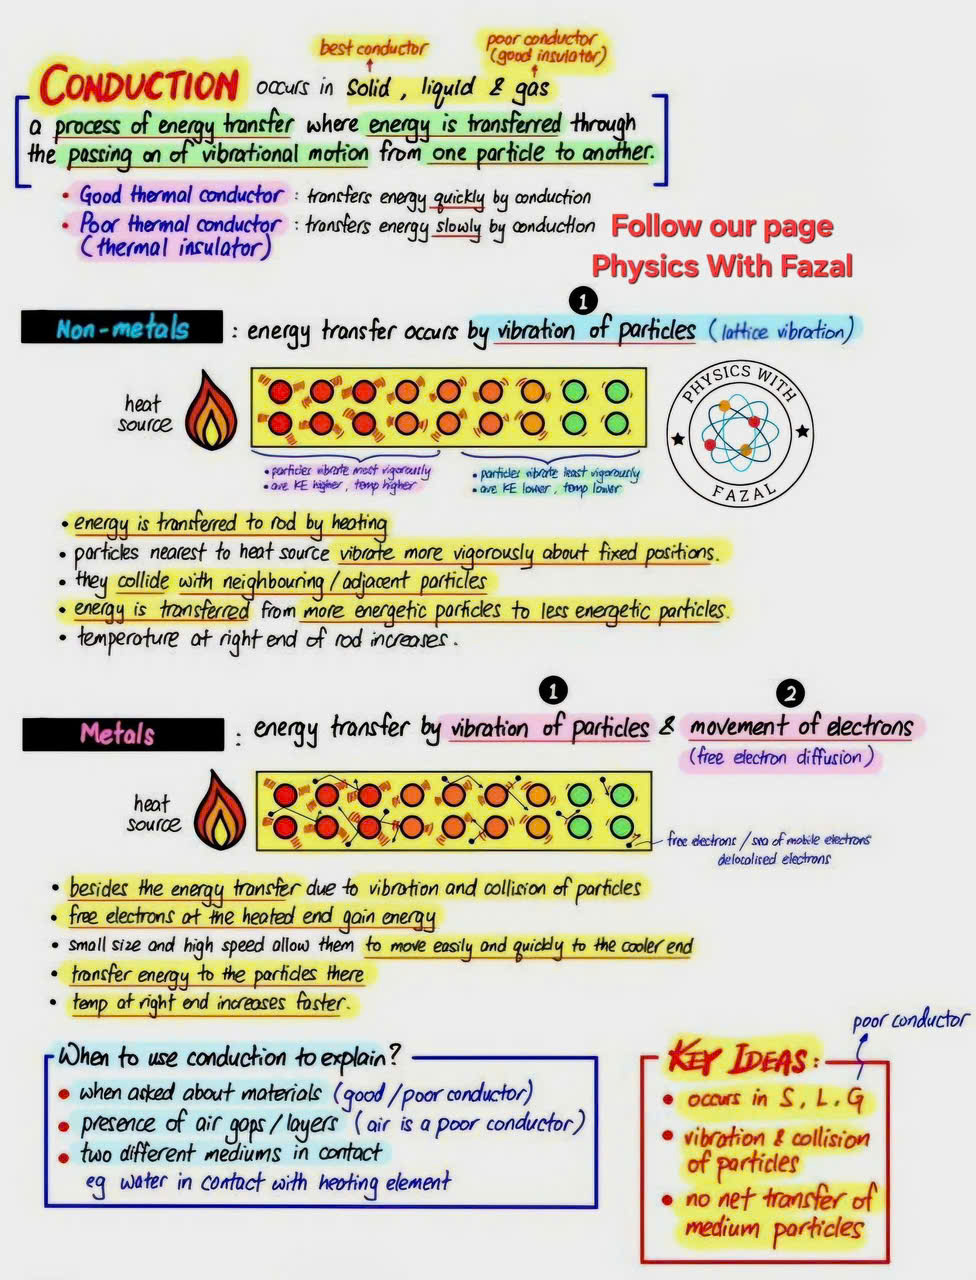 best conductor
poor conductor
(good insulator)
CONDUCTION occurs in solid, liquid & gas
a process of energy transfer where energy is transferred through
the passing on of vibrational motion from one particle to another.
• Good thermal conductor : transfers energy quickly by conduction
• Poor thermal conductor : transfers energy slowly by conduction
(thermal insulator)
Follow our page
Physics With Fazal
1
Non-metals : energy transfer occurs by vibration of particles (lattice vibration)
heat
source
PHYSICS WITH
FAZAL
• particles vibrate most vigorously
• ave KE higher, temp higher
• particles vibrate least vigorously
• ave KE lower, temp lower
• energy is transferred to rod by heating
• particles nearest to heat source vibrate more vigorously about fixed positions.
• they collide with neighbouring/adjacent particles
• energy is transferred from more energetic particles to less energetic particles.
• temperature at right end of rod increases.
1
2
Metals : energy transfer by vibration of particles & movement of electrons
(free electron diffusion)
heat
source
free electrons / sea of mobile electrons
delocalised electrons
• besides the energy transfer due to vibration and collision of particles
• free electrons at the heated end gain energy
• small size and high speed allow them to move easily and quickly to the cooler end
• transfer energy to the particles there
• temp at right end increases faster.
When to use conduction to explain?
• when asked about materials (good/poor conductor)
• presence of air gaps/layers (air is a poor conductor)
• two different mediums in contact
eg water in contact with heating element
poor conductor
KEY IDEAS:
• occurs in S, L, G
• vibration & collision
of particles
• no net transfer of
medium particles